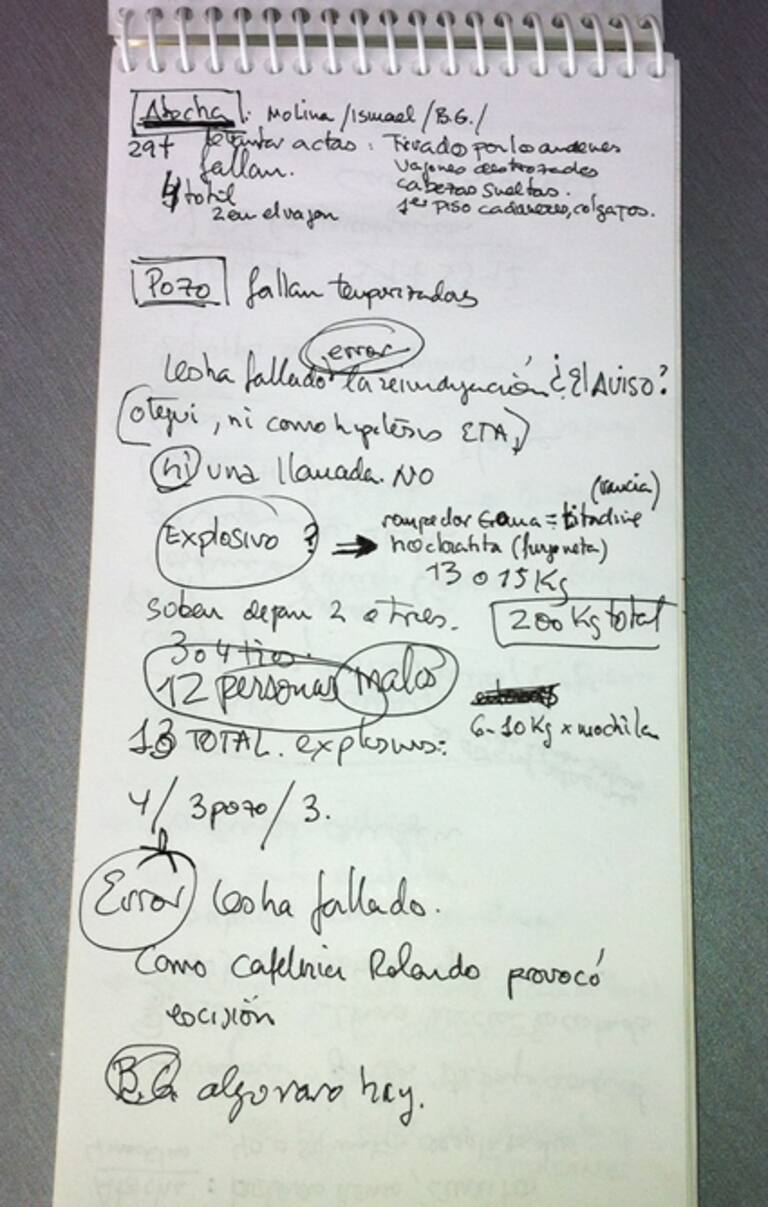 Atocha: Molina / Ismael / B.G. /
29+ levantar actas: Tirado por los andenes
fallan. vagones destrozados
4 total cabezas sueltas.
2 en el vagon 1er piso cadaveres, colgajos.
Pozo fallan temporizadas
error
les ha fallado la reivindicación ¿El AVISO?
(otegui, ni como hipótesis ETA)
ni una llamada. NO
(rancia)
Explosivo ? → rompedor Goma = titadine
(furgoneta)
13 o 15 Kg
suben dejan 2 o tres. 200 Kg total
3 o 4 tios.
12 personas malos
6-10 Kg x mochila
13 TOTAL. explosivos:
4 / 3 pozo / 3.
Error les ha fallado.
Como cafetería Rolando provocó
escisión
B.G algo raro hay.